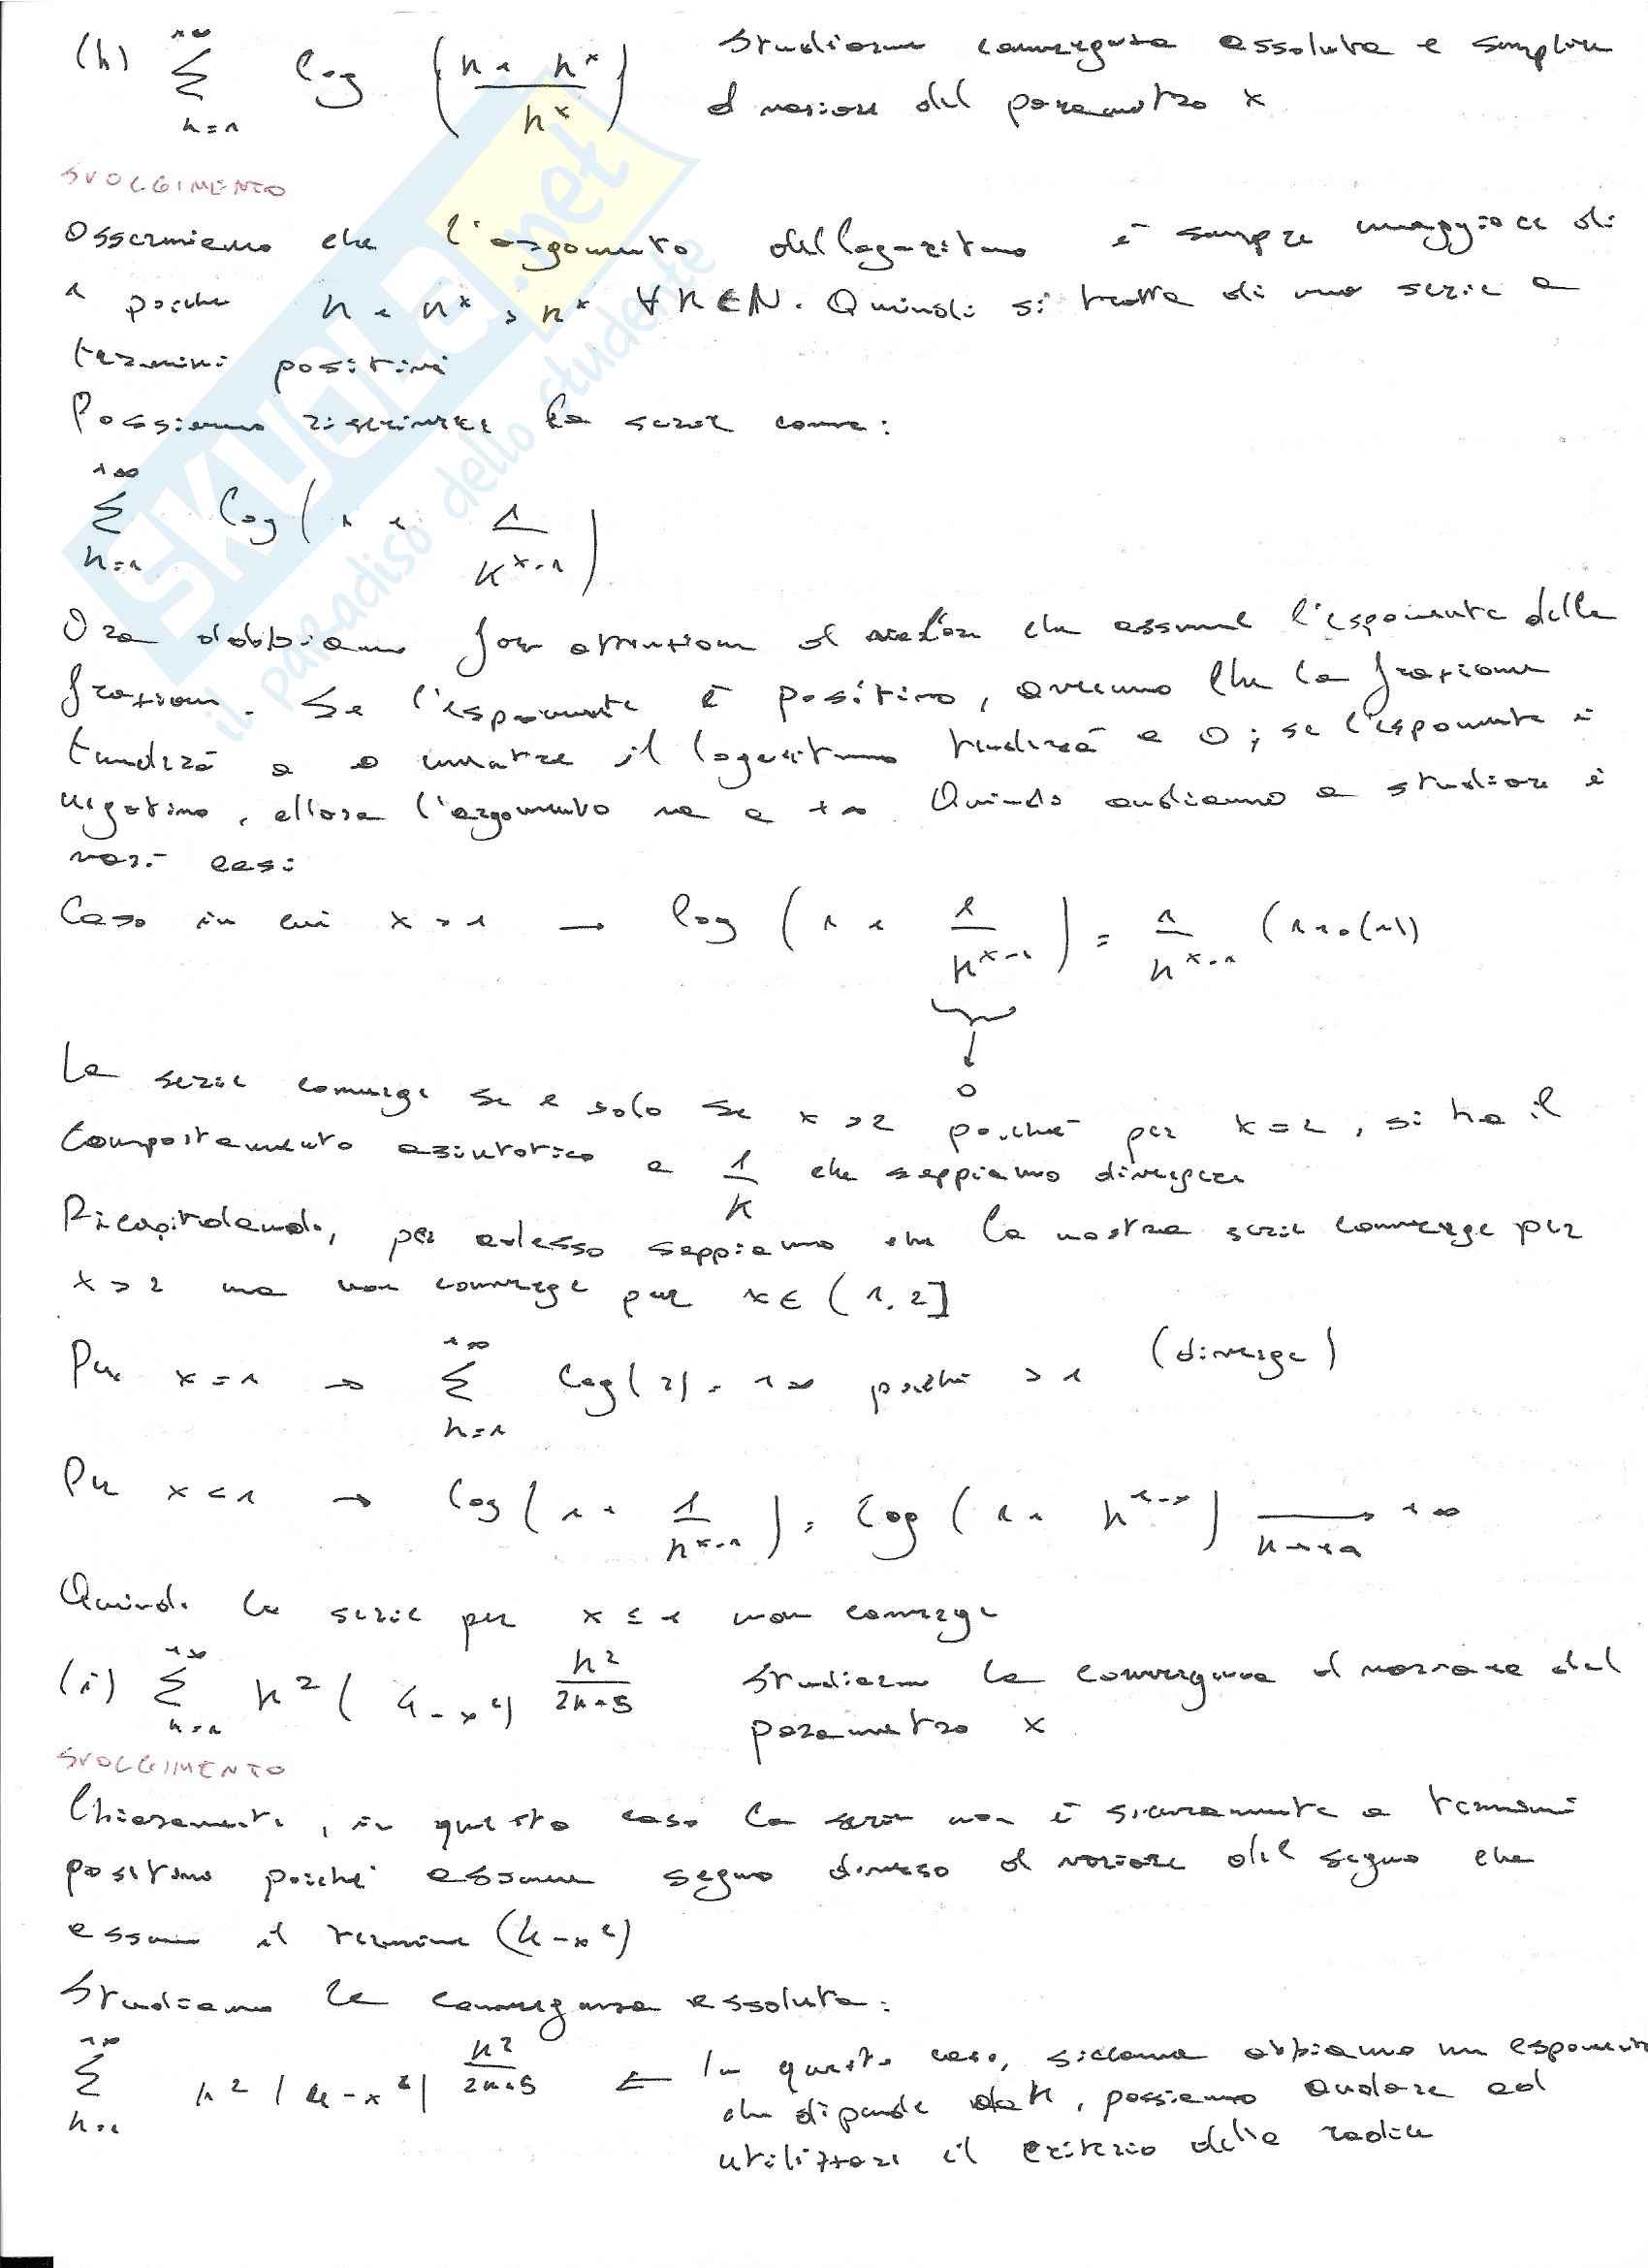 (h) $\sum_{n=1}^{+\infty} \log \left( \frac{n + n^x}{n^x} \right)$ Studiare convergenza assoluta e semplice
al variare del parametro x
SVOLGIMENTO
Osserviamo che l'argomento del logaritmo è sempre maggiore di
1 poiché $n + n^x > n^x$ ∀n∈N. Quindi si tratta di una serie a
termini positivi
Possiamo riscrivere la serie come:
$\sum_{n=1}^{+\infty} \log \left( 1 + \frac{1}{n^{x-1}} \right)$
Ora dobbiamo fare attenzione al valore che assume l'esponente della
frazione. Se l'esponente è positivo, avremo che la frazione
tenderà a 0 mentre il logaritmo tenderà a 0; se l'esponente è
negativo, allora l'argomento va a +∞. Quindi andiamo a studiare i
vari casi
Caso in cui x > 1 → $\log \left( 1 + \frac{1}{n^{x-1}} \right) = \frac{1}{n^{x-1}} (1 + o(1))$
↓
0
La serie converge se e solo se x > 2 poiché per x = 2, si ha il
comportamento asintotico a $\frac{1}{n}$ che sappiamo divergere
Ricapitolando, per adesso sappiamo che la nostra serie converge per
x > 2 ma non converge per x ∈ (1, 2]
Per x = 1 → $\sum_{n=1}^{+\infty} \log(2) = +\infty$ poiché > 1 (diverge)
Per x < 1 → $\log \left( 1 + \frac{1}{n^{x-1}} \right) = \log \left( 1 + n^{1-x} \right) \xrightarrow[n \to +\infty]{} +\infty$
Quindi la serie per x ≤ 1 non converge
(i) $\sum_{n=1}^{+\infty} n^2 (4 - x^2)^{\frac{n^2}{2n+5}}$ Studiare la convergenza al variare del
parametro x
SVOLGIMENTO
Chiaramente, in questo caso la serie non è sicuramente a termini
positivi poiché assume segno diverso al variare del segno che
assume il termine $(4 - x^2)$
Studiamo la convergenza assoluta:
$\sum_{n=1}^{+\infty} n^2 |4 - x^2|^{\frac{n^2}{2n+5}}$ ← In questo caso, siccome abbiamo un esponente
che dipende da n, possiamo andare ad
utilizzare il criterio della radice
SKUOLA.net
il paradiso dello studente